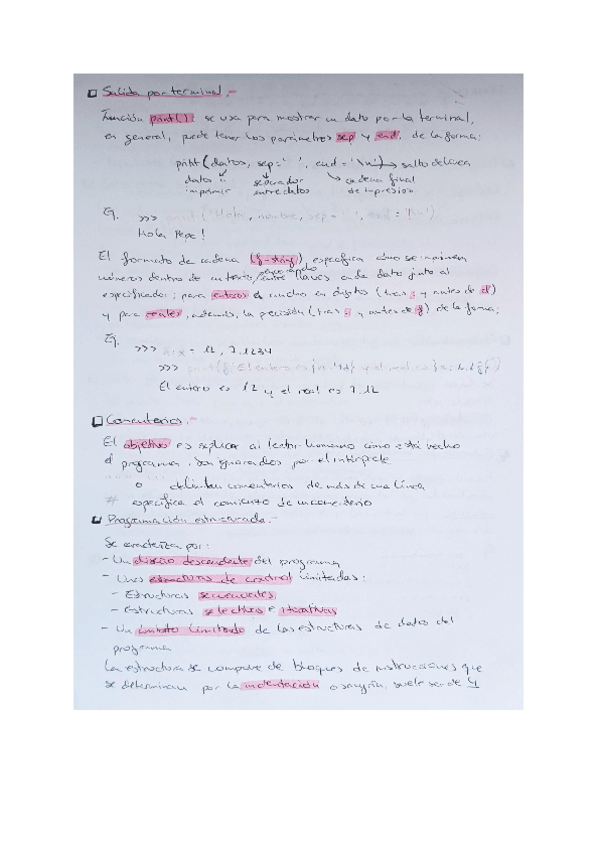 Salida por terminal.-
Función print(): se usa para mostrar un dato por la terminal,
en general, puede tener los parámetros sep y end, de la forma:
print(datos, sep=' ', end='\n') → salto de línea
datos a separador cadena final
imprimir entre datos de impresión
Ej. >>> print('Hola', nombre, sep=' ', end='!\n')
Hola Pepe!
El formato de cadena (f-string), especifica cómo se imprimen
números dentro de un texto entre llaves cada dato junto al
especificador; para enteros el ancho en dígitos (tras : y antes de d)
y para reales, además, la precisión (tras . y antes de f) de la forma:
Ej.
>>> = 12, 7.1234
>>> print(f'El entero es y el real es
El entero es 12 y el real es 7.12
Comentarios.-
El objetivo es explicar al lector humano cómo está hecho
el programa, son ignorados por el intérprete
o delimitan comentarios de más de una línea
# especifica el comienzo de un comentario
Programación estructurada.-
Se caracteriza por:
- Un diseño descendente del programa
- Unas estructuras de control limitadas:
- Estructuras secuenciales
- Estructuras selectivas e iterativas
- Un ámbito limitado de las estructuras de datos del
programa
La estructura se compone de bloques de instrucciones que
se determinan por la indentación o sangría, suele ser de 4